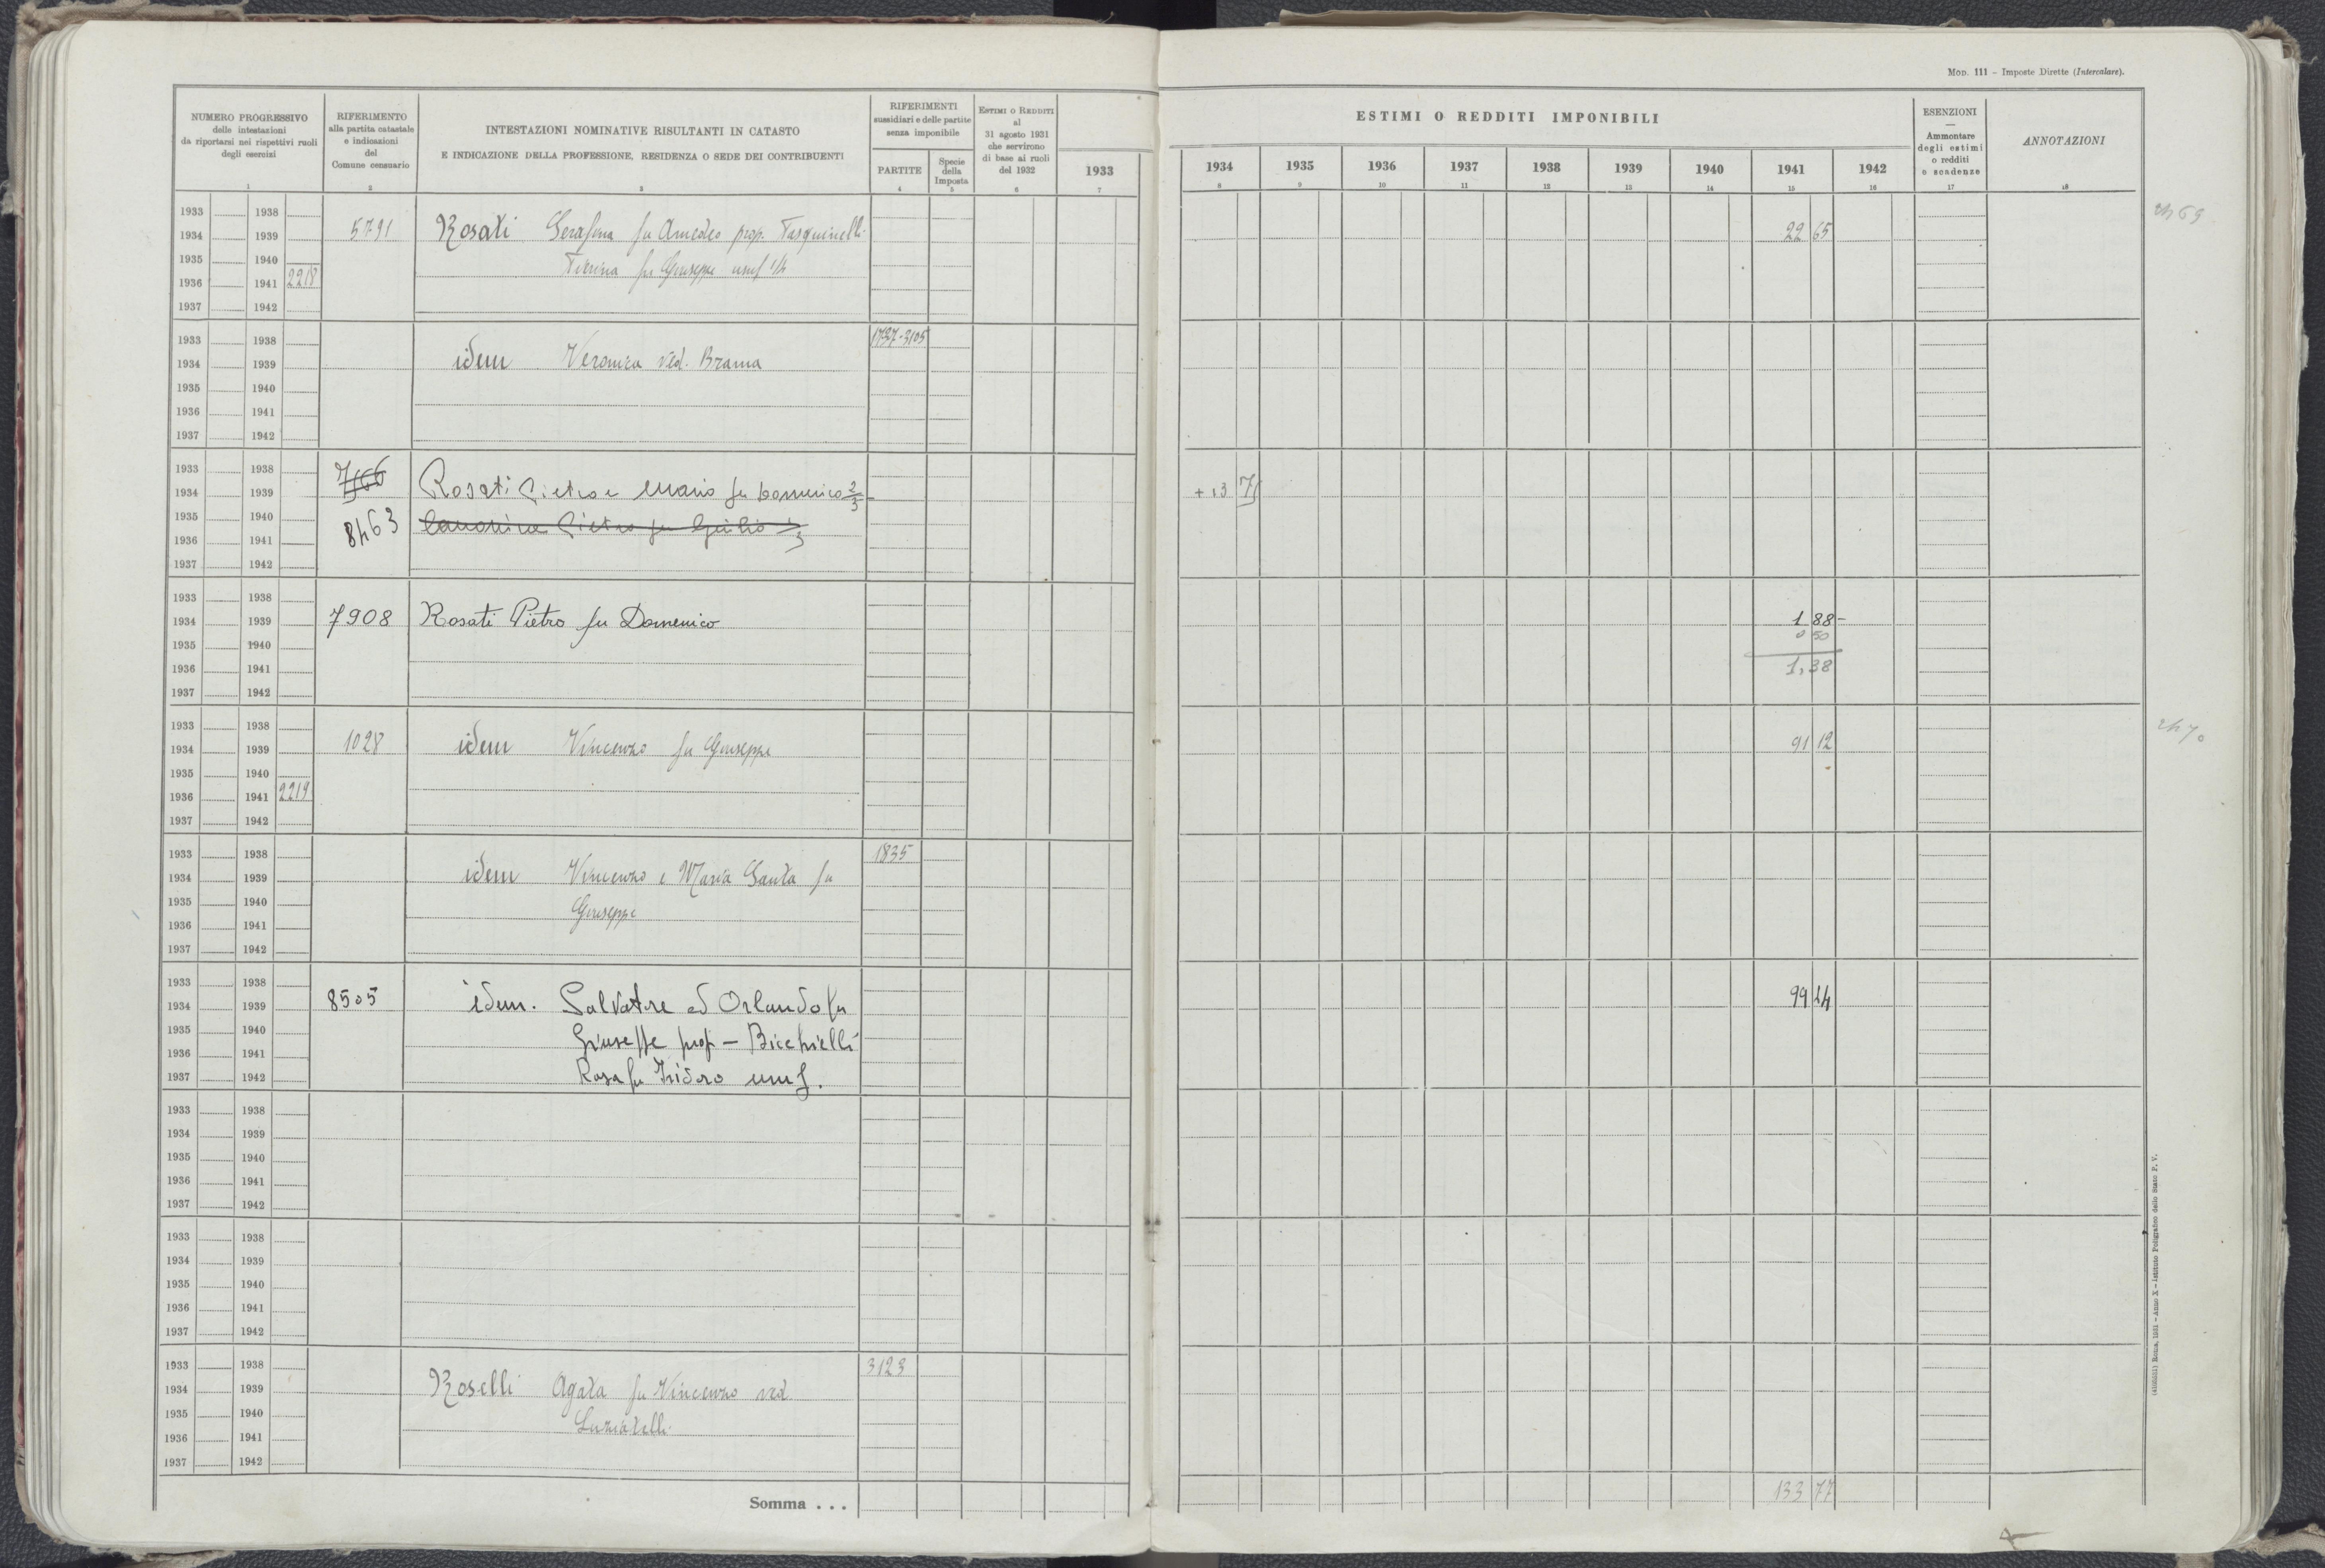 MOD. 111 - Imposte Dirette (Intercalare).
NUMERO PROGRESSIVO
delle intestazioni
da riportarsi nei rispettivi ruoli
degli esercizi
1
RIFERIMENTO
alla partita catastale
e indicazioni
del
Comune censuario
2
INTESTAZIONI NOMINATIVE RISULTANTI IN CATASTO
E INDICAZIONE DELLA PROFESSIONE, RESIDENZA O SEDE DEI CONTRIBUENTI
3
RIFERIMENTI
sussidiari e delle partite
senza imponibile
PARTITE
4
Specie
della
Imposta
5
ESTIMI O REDDITI
al
31 agosto 1931
che servirono
di base ai ruoli
del 1932
6
1933
7
ESTIMI O REDDITI IMPONIBILI
1934 1935 1936 1937 1938 1939 1940 1941 1942
8 9 10 11 12 13 14 15 16
ESENZIONI
—
Ammontare
degli estimi
o redditi
e scadenze
17
ANNOTAZIONI
18
1933 1938
1934 1939 5791 Rosati Serafina fu Amedeo prop. Pasquinelli 22 65
1935 1940 fu Giuseppe usuf
1936 1941 2218
1937 1942
2469
1933 1938 1737-3105
1934 1939 idem Veronica ved. Brama
1935 1940
1936 1941
1937 1942
1933 1938 7166
1934 1939 Rosati Pietro e Mario fu Domenico 2/3 + 13 75
1935 1940 8463 Pietro fu Giulio 1/3
1936 1941
1937 1942
1933 1938
1934 1939 7908 Rosati Pietro fu Domenico 1 88-
1935 1940 0 50
1936 1941 1,38
1937 1942
1933 1938
1934 1939 1028 idem Vincenzo fu Giuseppe 91 12
1935 1940
1936 1941 2219
1937 1942
2470
1933 1938 1835
1934 1939 idem Vincenzo e Maria Santa fu
1935 1940 Giuseppe
1936 1941
1937 1942
1933 1938
1934 1939 8505 idem. Salvatore ed Orlando fu 99 44
1935 1940 Giuseppe prop - Bicchielli
1936 1941
1937 1942 Rosa fu Isidoro usuf.
1933 1938
1934 1939
1935 1940
1936 1941
1937 1942
1933 1938
1934 1939
1935 1940
1936 1941
1937 1942
1933 1938 3123
1934 1939 Roselli Agata fu Vincenzo ved
1935 1940 Luniatelli
1936 1941
1937 1942
Somma . . . 133 77
Roma, 1931 - Anno X - Istituto Poligrafico dello Stato P. V.